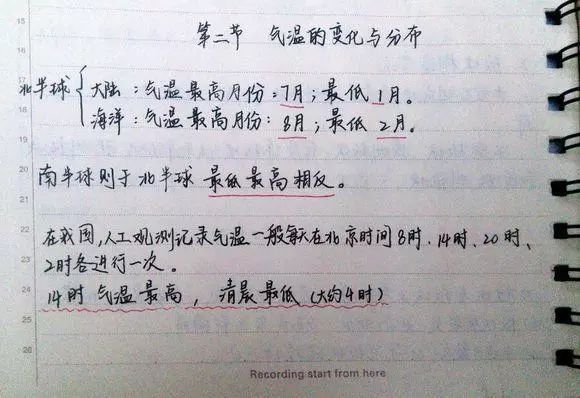 15
第二节 气温的变化与分布
16
北半球{大陆：气温最高月份：7月；最低1月。
17
海洋：气温最高月份：8月；最低2月。
18
19
20
南半球则于北半球 最低最高相反。
21
22
在我国，人工观测记录气温一般每天在北京时间8时、14时、20时、
23
2时各进行一次。
24
14时 气温最高，清晨最低（大约4时）
25
26
Recording start from here